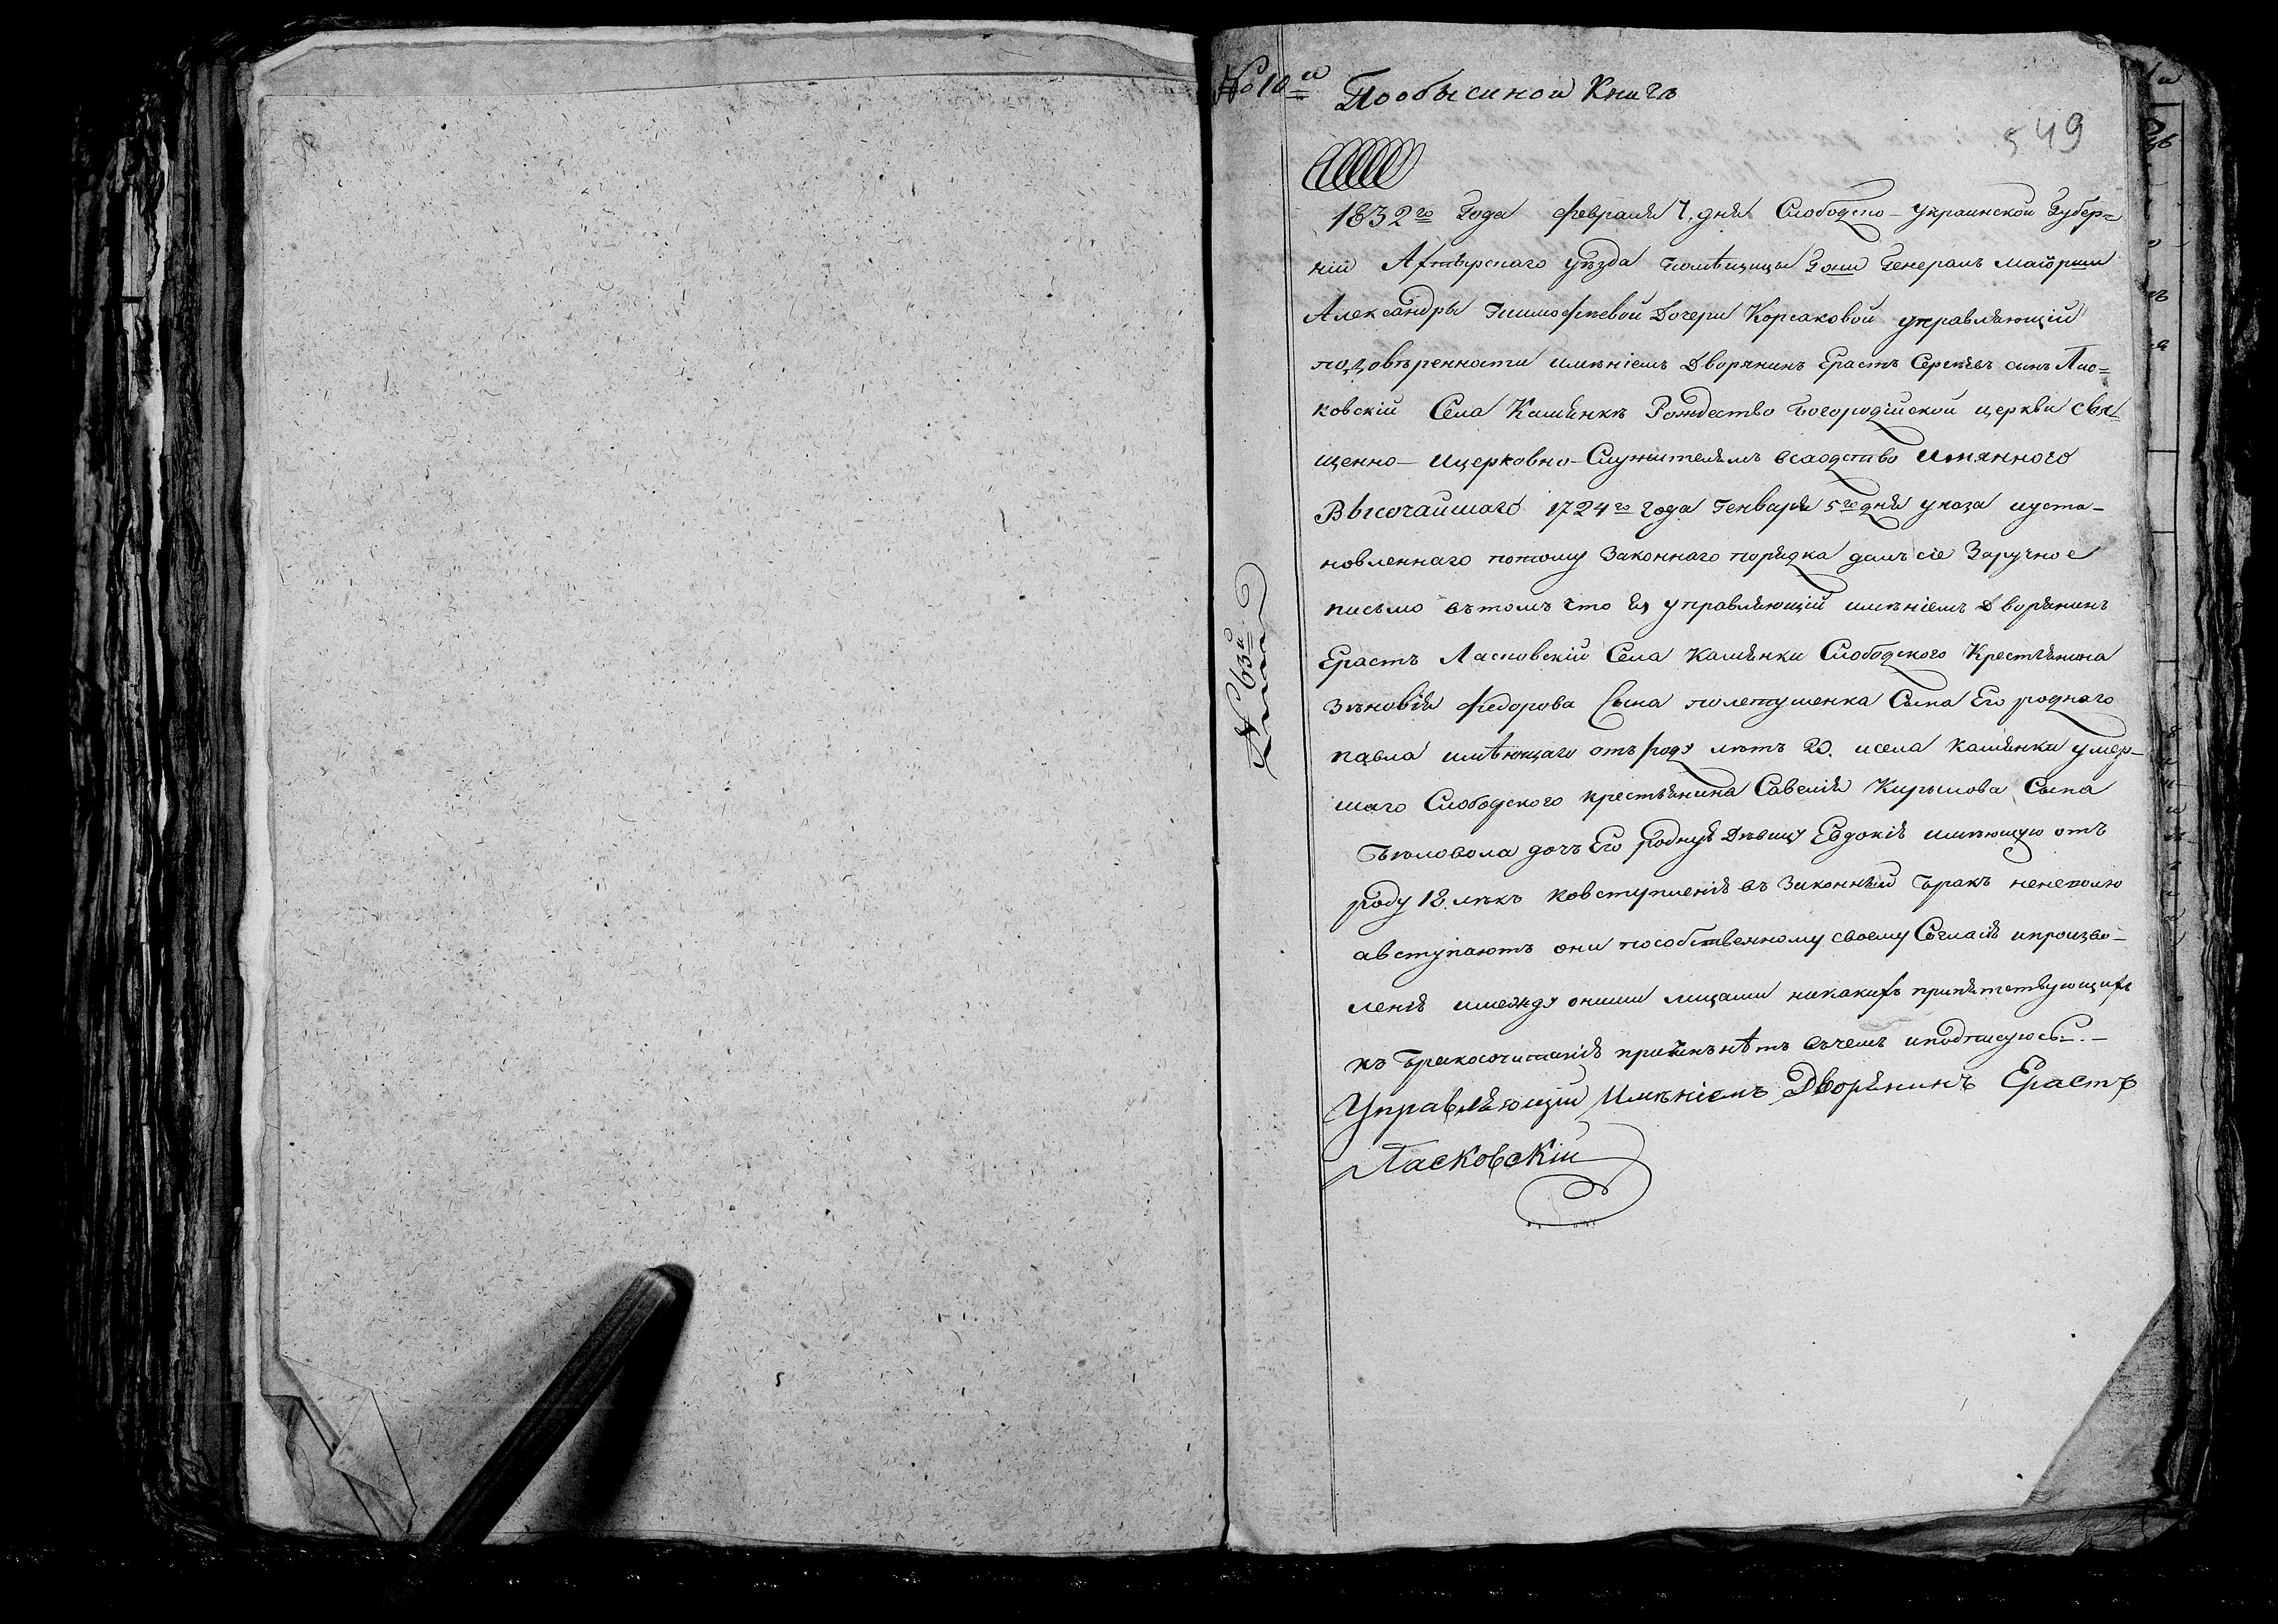 № 10й Пообысиной Книгѣ
549
1832го Года февраля 7. дня Слободско-Украинской Губер=
ніи Ахтырскаго уѣзда помѣщицы Гжи Генералъ маіорши
Александры Тимофѣевой Дочери Корсаковой управляющій
подовѣренности имѣніемъ Дворянинъ Ерастъ Сергѣевъ сынъ Лас=
ковскій Села Камянкѣ Рождество Богородійской церкви свя=
щенно- ицерковно-Служителямъ всаодство Имянного
Высочайшаго 1724го Года Генваря 5го дня указа иуста-
новленнаго потому Законнаго порядка далъ сіе Заручное
письмо вътомъ что Я управляющій имѣніемъ Дворянинъ
Ерастъ Ласковскій Села Камянки Слободского Крестьянина
Зѣновія Федорова Сына полетушенка Сына Его роднаго
павла имѣющаго отъ роду лѣтъ 20. исела Камянки умер-
шаго Слободского крестьянина Савелія Кирылова Сына
Бѣловола дочь Его роднуя Дѣвицу Евдокія имѣющую отъ
роду 18. лѣтъ ковступленія въ Законный Бракъ неневолю
авступаютъ они пособственному своему Согласія ипроизво-
ленія имежду оними лицами никакихъ припятствующихъ
къ Бракосочитанія причинънѣтъ въчемъ иподписуюсь.-
Управляющій Имѣніемъ Дворянинъ Ерастъ
Ласковскій
№ 63й